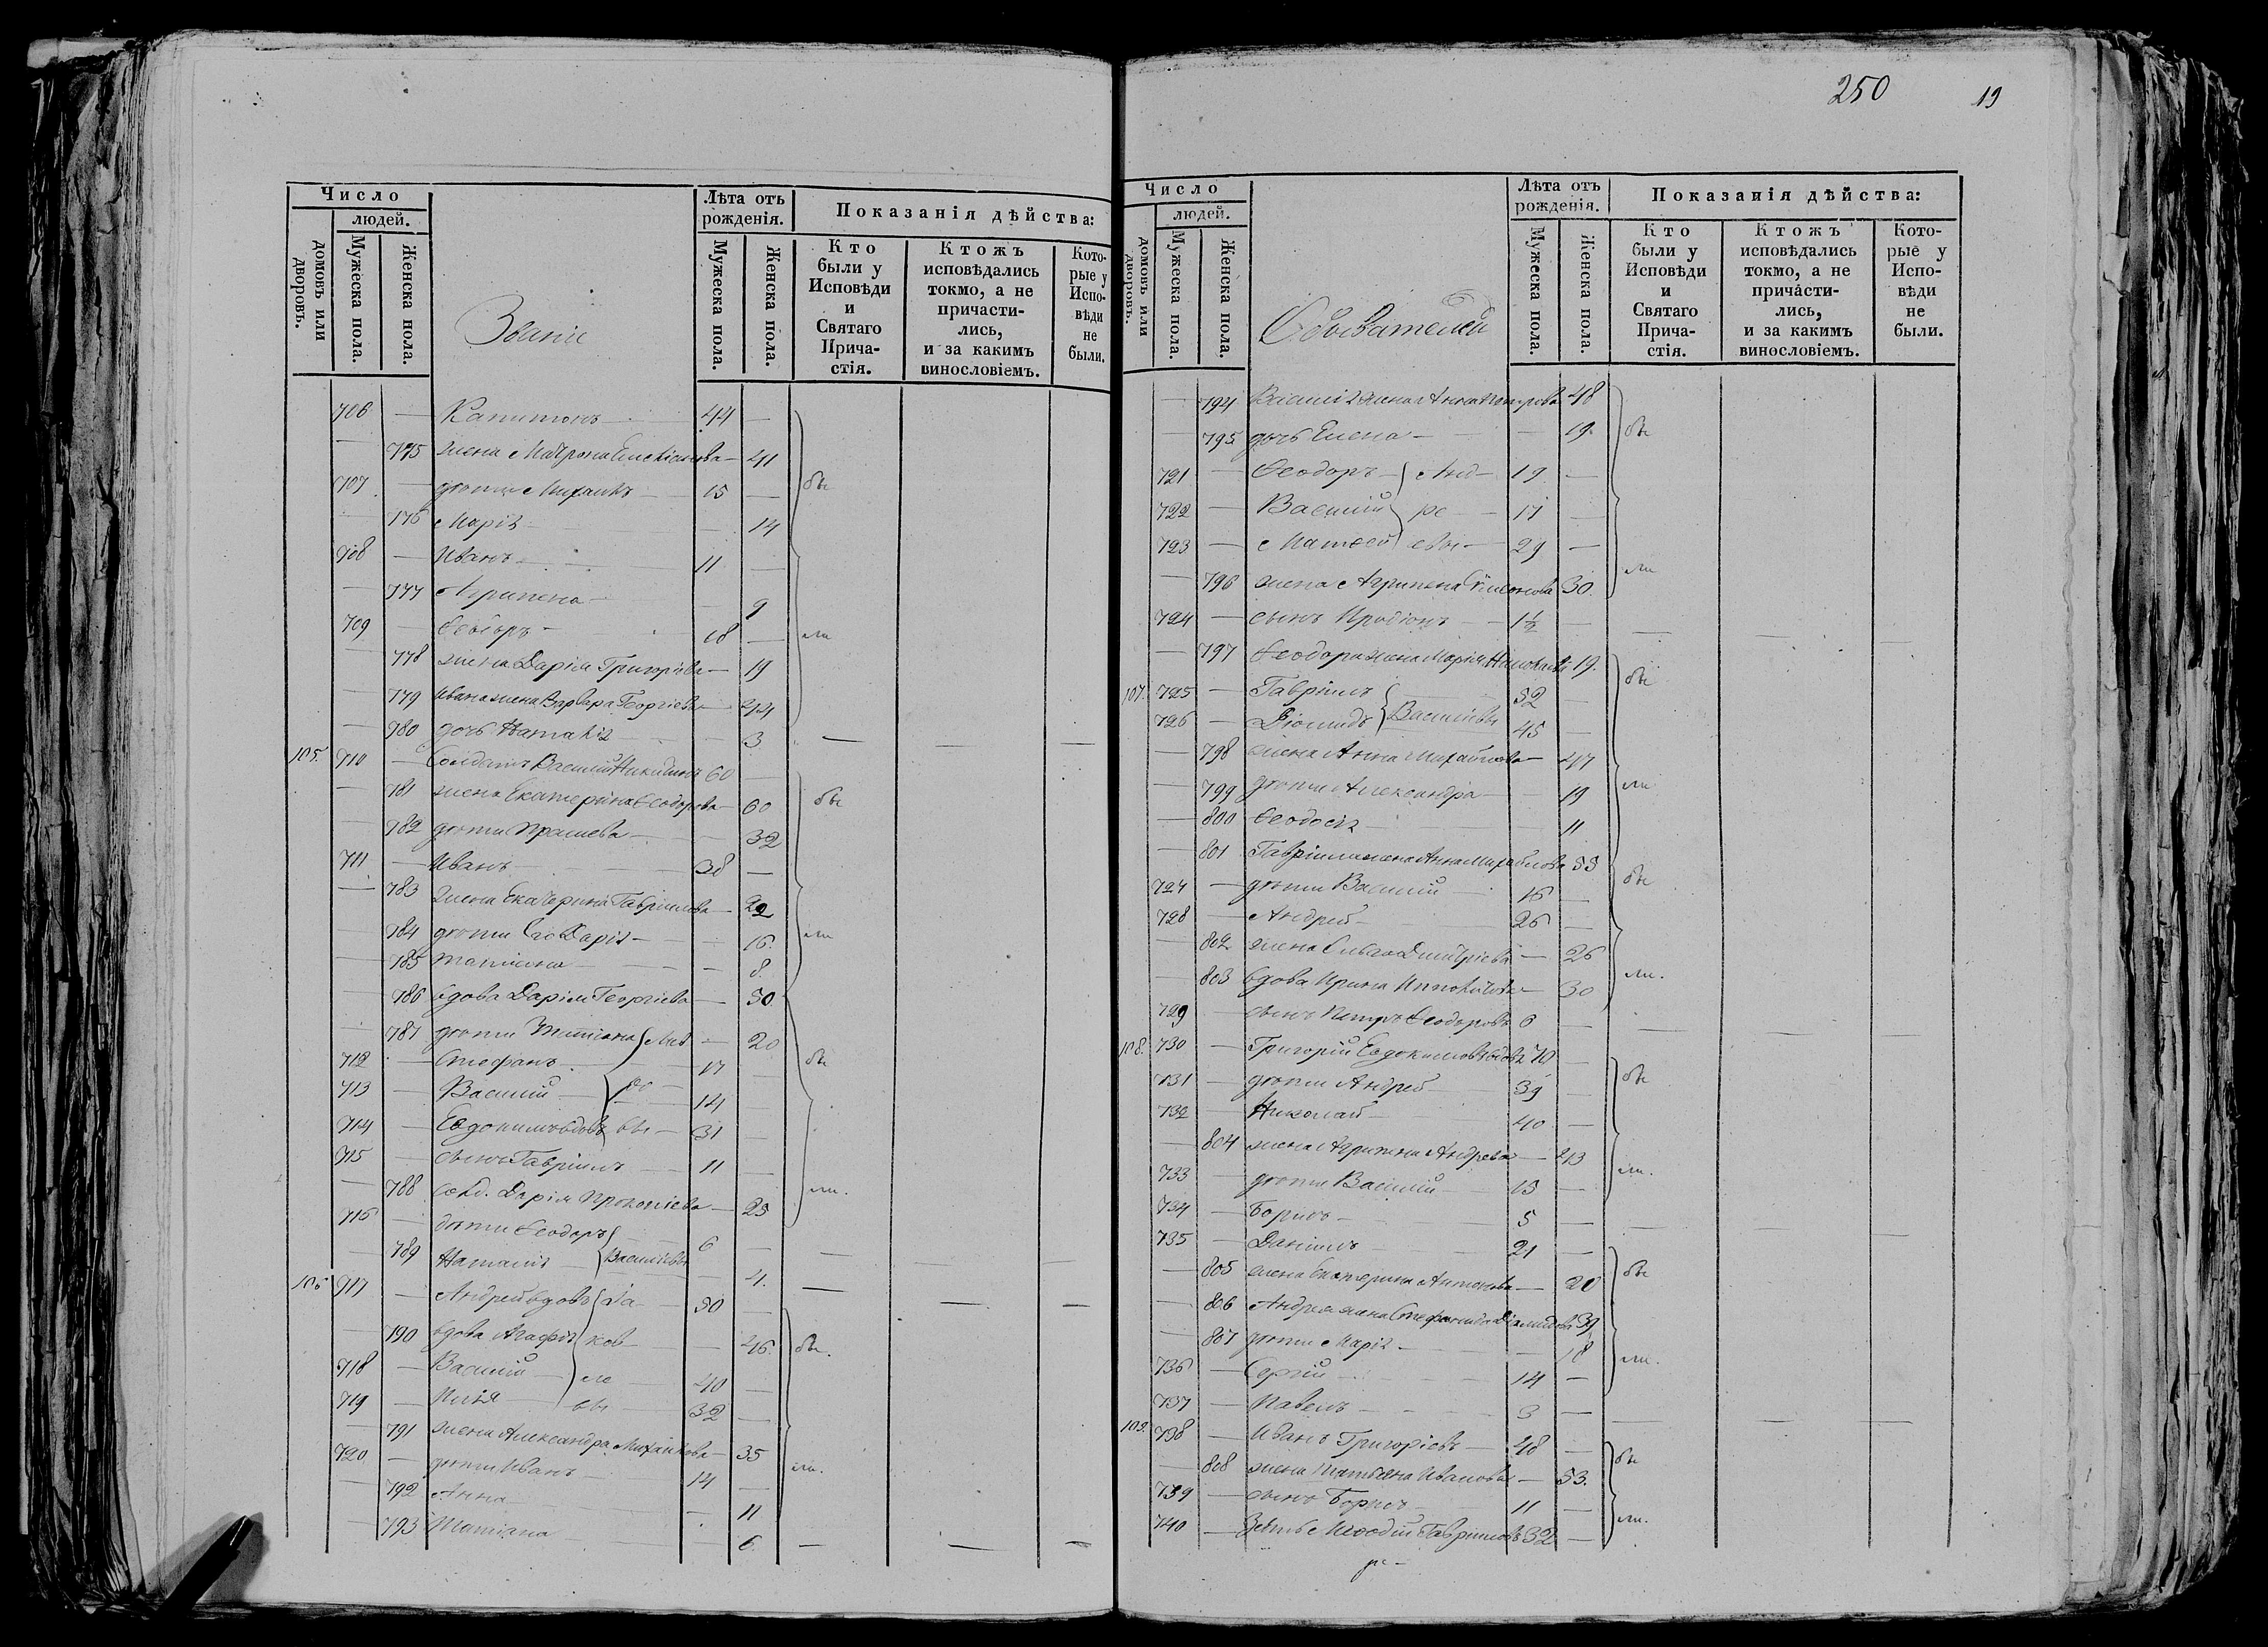 250
19
Число
людей.
домовъ или дворовъ.
Мужеска пола.
Женска пола.
Званiе
Лѣта отъ рожденiя.
Мужеска пола.
Женска пола.
Показанiя дѣйства:
Кто были у Исповѣди и Святаго Прича-стiя.
Ктожъ исповѣдались токмо, а не причасти-лись, и за какимъ винословiемъ.
Кото-рые у Испо-вѣди не были.
706 — Капитонъ — 44 —
— 775 жена Матрона — 41
707 — дѣти Михаилъ — 15 —
176 Марiя — 14
708 — Иванъ — 11 —
— 777 Агрипена — 9
709 — Ѳеодоръ — 18 —
— 778 жена Дарiя Григорiева — 19
— 779 Ивана жена Варвара Георгiева — 44
— 780 дочь Наталiя — 3
105. 710 — Солдатъ Василiй Никитинъ 60 —
— 781 жена Екатерина Ѳеодорова — 60
— 782 дѣти — 32
711 — Иванъ — 38 —
— 783 жена Екатерина Гаврiилова — 22
— 784 дѣти Дарiя — 16.
785 Татiана — 8.
786 вдова Дарiя Георгiева — 50.
— 787 дѣти Татiана — 20
712 — Стефанъ — 17
713 — Василiй — 14 —
714 — Евдокимъ вдовъ — 31 —
715 — сынъ Гаврiилъ — 11 —
— 788 Дарiя Прокопiева — 25
716 — дѣти Ѳеодоръ — 6 —
— 789 Наталiя Васильевы — 4.
106 717 — Андрей вдовъ Iа — 50 —
— 790 вдова Агафiя ков — 46.
718 — Василiй — ле — 40 —
719 — Илья — вы — 32 —
— 791 жена Александра Михайлова — 35
720 — дѣти Иванъ — 14 —
— 792 Анна — 11
— 793 Татiана — 6.
бы
ли
бы
ли
бы
ли.
бы.
ли.
Число
людей.
домовъ или дворовъ.
Мужеска пола.
Женска пола.
Обывателей
Лѣта отъ рожденiя.
Мужеска пола.
Женска пола.
Показанiя дѣйства:
Кто были у Исповѣди и Святаго Прича-стiя.
Ктожъ исповѣдались токмо, а не причасти-лись, и за какимъ винословiемъ.
Кото-рые у Испо-вѣди не были.
— 794 Василiя жена Анна Петрова 48
— 795 дочь Елена — 19.
721 — Ѳеодоръ — Анд — 19 —
722 — Василiй ре — 17 —
723 — Матѳей евы — 29 —
— 796 жена Агрипена Симеонова 30.
724 — сынъ Иродiонъ — 1½ —
— 797 Ѳеодора жена Марiя Николаева 19.
107. 725 — Гаврiилъ — 52 —
726 — Дiомидъ Василiевы — 45 —
— 798 жена Анна Михайлова — 47
— 799 дѣти Александра — 19
— 800 Ѳеодосiя — 11
— 801 Гаврiила жена Анна Михайлова 55
727 — дѣти Василiй — 16 —
728 — Андрей — 26 —
— 802 жена Ольга Димитрiева — 26
— 803 вдова Ирина — 30
729 — сынъ Петръ Ѳеодоровъ 6 —
108. 730 — Григорiй Евдокимовъ вдовъ 70 —
731 — дѣти Андрей — 39 —
732 — Николай — 40 —
— 804 жена Агрипена Андреева — 43
733 — дѣти Василiй — 15 —
734 — Борисъ — 5 —
735 — Данiилъ — 21 —
— 805 жена Екатерина Антонова — 20
— 806 Андрея жена Стефанида Дiомидова 39
— 807 дѣти Марiя — 18
736 — Сергiй — 14 —
737 — Павелъ — 3 —
109. 738 — Иванъ Григорiевъ — 48 —
— 808 жена Татьяна Иванова — 53.
739 — сынъ Борисъ — 11 —
740 — Зять Меѳодiй Гаврiиловъ 32 —
бы
ли
бы
ли
бы
ли.
бы
ли.
бы
ли.
бы
ли.